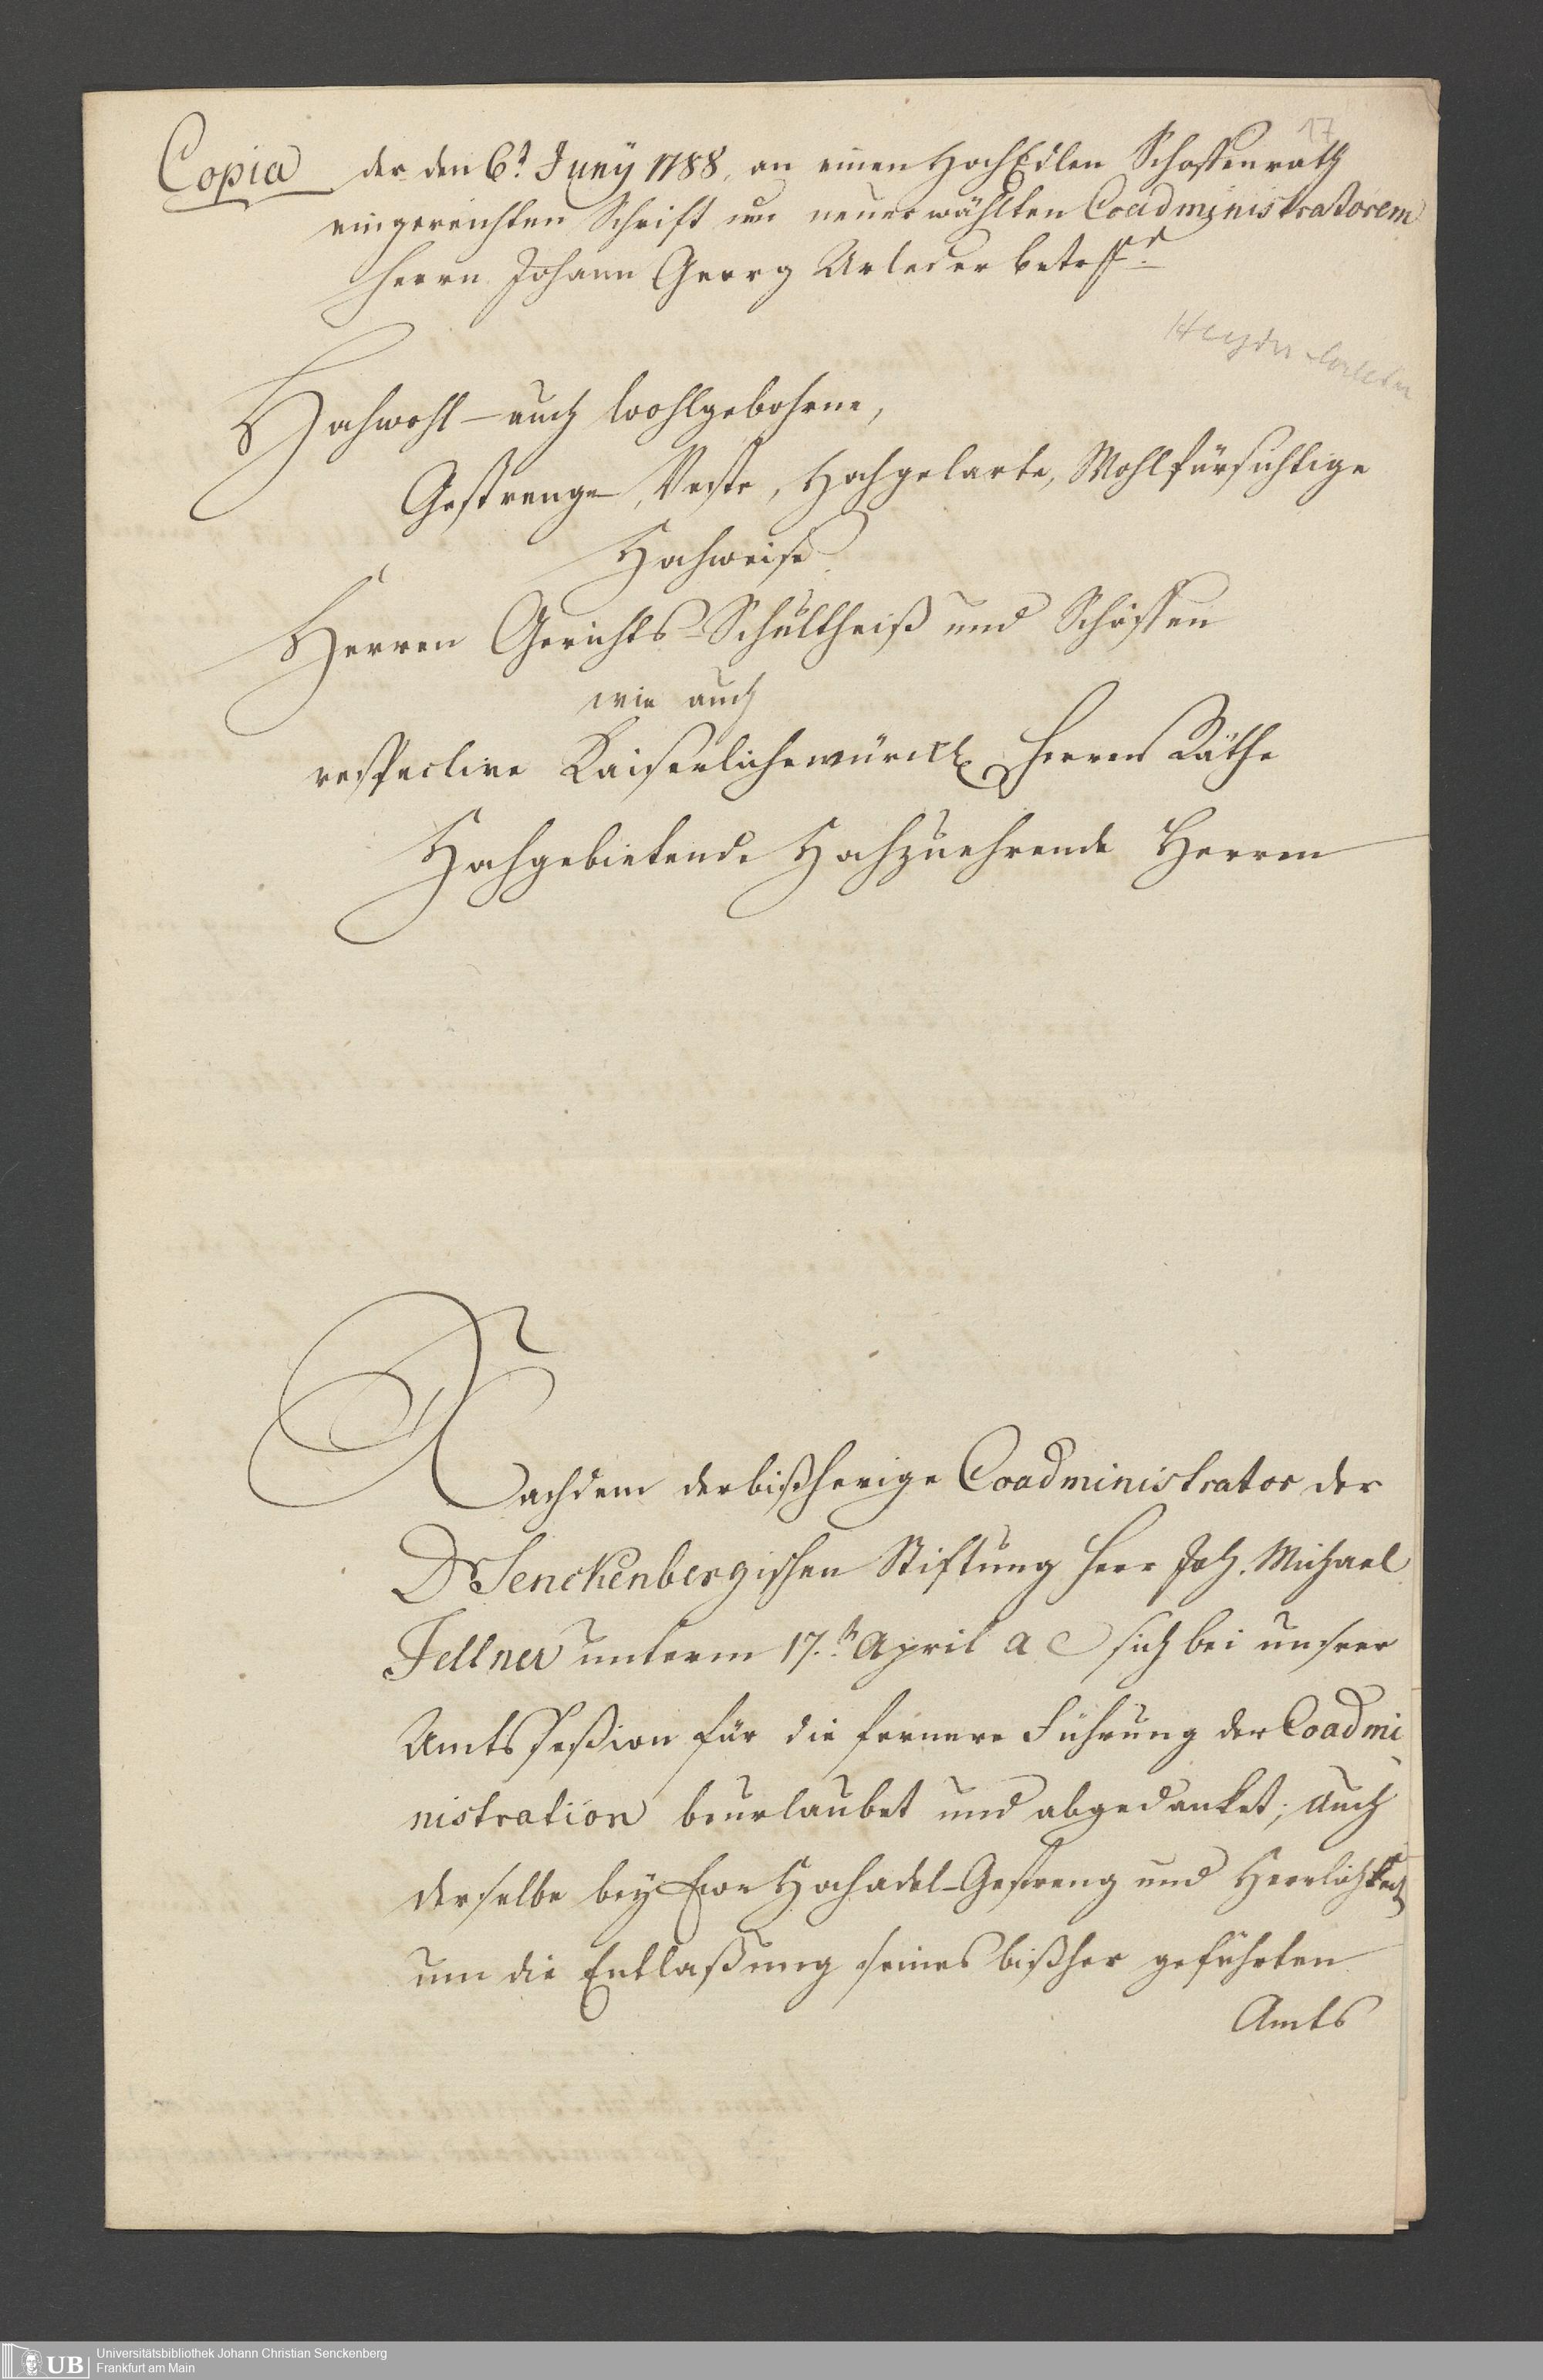 17
Copia der den 6t Juny 1788, an einen HochEdlen Schöffenrath
eingereichten Schrift neuerwählten Coadministratorem
Herrn Johann Georg Arleder betreff.d
Hochwohl- auch Wohlgebohrne,
Gestrenge, Veste, Hochgelarte, Wohlfürsichtige
Hochweise
Herren Gerichts-Schultheiß und Schöffen
wie auch
respective Kaiserliche würckl Herren Räthe
Hochgebietende Hochzuehrende Herren
Nachdem der bißherige Coadministrator der
Dr Senckenbergischen Stiftung Herr Joh. Michael
Fellner unterm 17.ten April a c sich bei unserer
Amts Seßion für die fernere Führung der Coadmi
nistration beurlaubet und abgedanket; auch
derselbe bey Ewr Hochadel-Gestreng und Herrlichkeit
um die Entlaßung seines bißher geführten
Amts
UB
Universitätsbibliothek Johann Christian Senckenberg
Frankfurt am Main